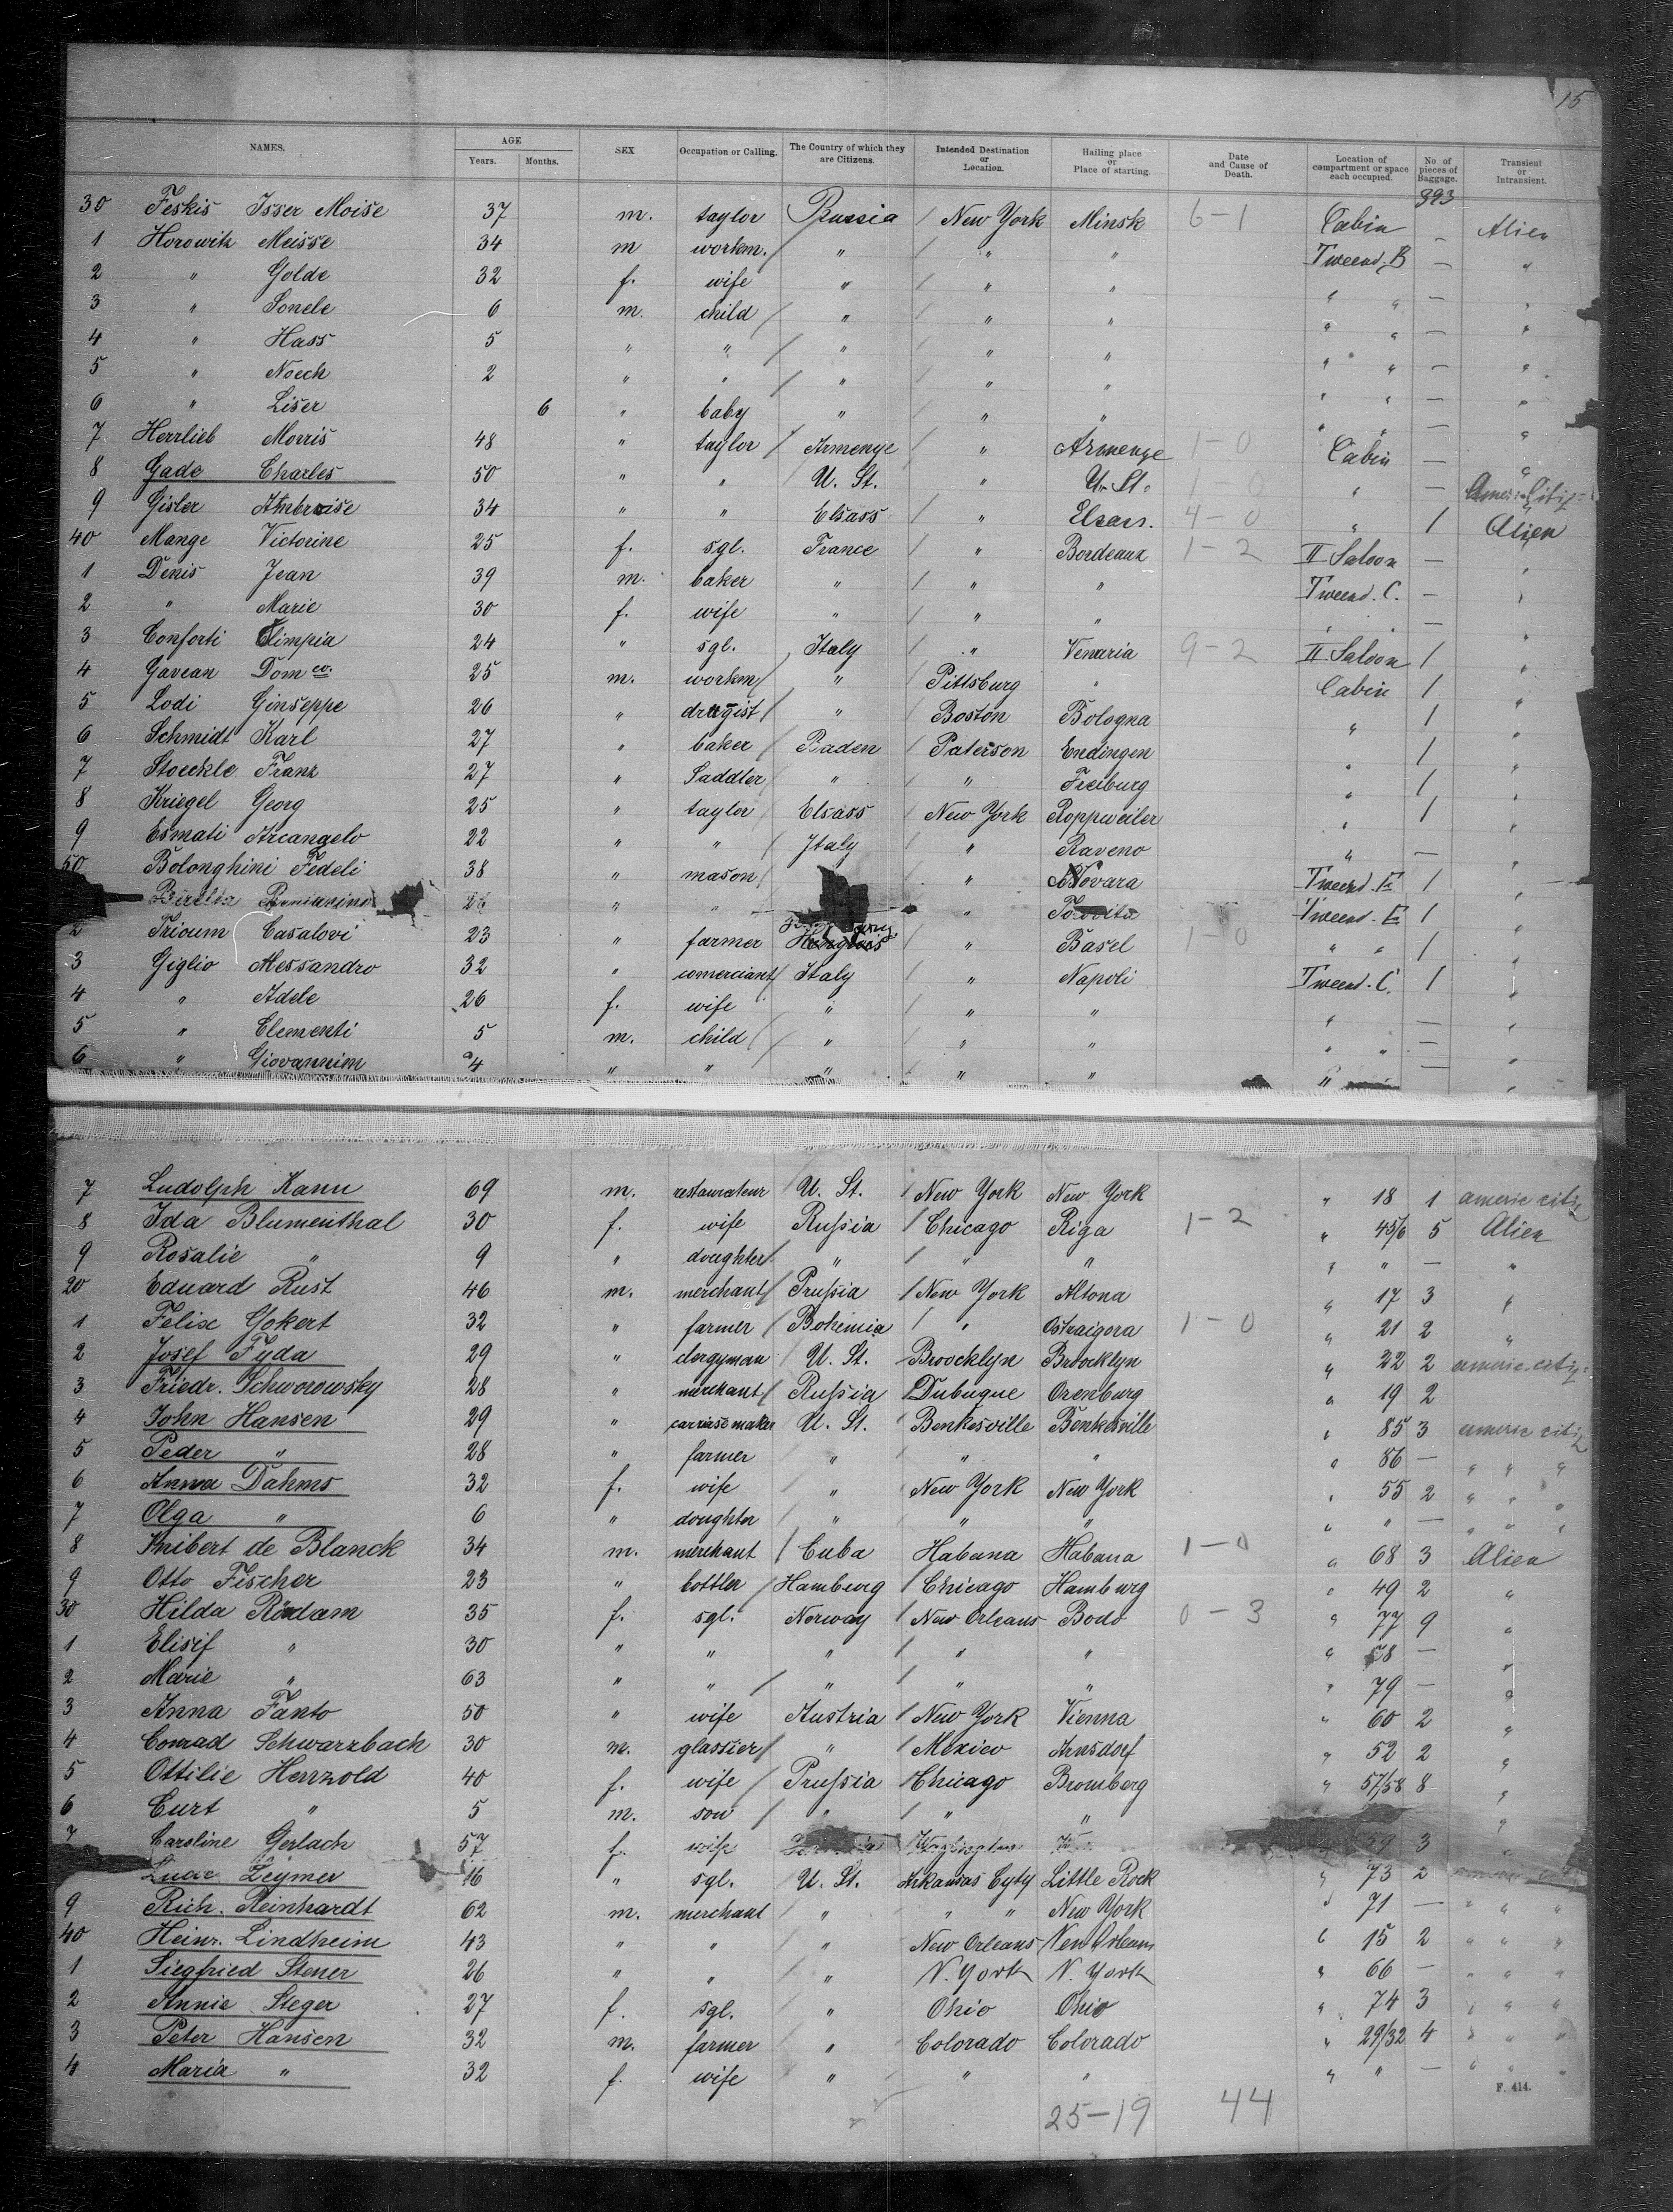 15
NAMES. AGE Years. Months. SEX Occupation or Calling. The Country of which they are Citizens. Intended Destination or Location. Hailing place or Place of starting. Date and Cause of Death. Location of compartment or space each occupied. No of pieces of Baggage. Transient or Intransient.
993
30 Feskis Isser Moise 37 m. taylor Russia / New York Minsk 6-1 Cabin — Alien
1 Horowitz Meisse 34 m workm. / " / " " Tweend. B — "
2 " Golde 32 f. wife " / " " " " — "
3 " Sonele 6 m. child / " / " " " " — "
4 " Hass 5 " " / " / " " " " — "
5 " Noech 2 " " / " / " " " " — "
6 " Liser 6 " baby " / " " " " — "
7 Herrlieb Morris 48 " taylor / Armenye / " Armenye 1-0 Cabin — "
8 Gade Charles 50 " " U. St. " U. St. 1 0 " — Americ Citiz
9 Gisler Ambroise 34 " " Elsass / " Elsass. 4-0 " 1 Alien
40 Mange Victorine 25 f. sgl. France / " Bordeaux 1-2 II Saloon — "
1 Denis Jean 39 m. baker " / " " Tweend. C. — "
2 " Marie 30 f. wife " / " " " " — "
3 Conforti Olimpia 24 " sgl. Italy / " Venaria 9-2 II. Saloon 1 "
4 Gavean Dom co. 25 m. workm / " / Pittsburg " Cabin 1 "
5 Lodi Ginseppe 26 " drugist / " / Boston Bologna " 1 "
6 Schmidt Karl 27 " baker / Baden / Paterson Endingen " 1 "
7 Stoeckle Franz 27 " Saddler / " / " Freiburg " 1 "
8 Kriegel Georg 25 " taylor / Elsass / New York Roppweiler " 1 "
9 Esmati Arcangelo 22 " " / Italy / " Raveno " — "
50 Bolonghini Fedeli 38 " mason / " Novara Tweend. E 1 "
" " " Tweend. E 1 "
2 Trioum Casalovi 23 " farmer " Basel 1-0 " " 1 "
3 Giglio Alessandro 32 " comerciant / Italy / " Napoli Tweend. C. 1 "
4 " Adele 26 f. wife " / " " " — "
5 " Clementi 5 m. child / " / " " " " — "
6 " Giovannim 4 " " / " / " " " — "
7 Ludolph Kann 69 m. restaurateur / U. St. / New York New York " 18 1 americ citiz
8 Ida Blumenthal 30 f. wife Russia / Chicago Riga 1-2 " 45/6 5 Alien
9 Rosalie " 9 " doughter / " / " " " " — "
20 Eduard Rust 46 m. merchant / Prussia / New York Altona " 17 3 "
1 Felix Gokert 32 " farmer / Bohemia / " Ostraigora 1-0 " 21 2 "
2 Josef Fyda 29 " clergyman / U. St. Broocklyn Broocklyn " 22 2 americ citiz:
3 Friedr. Schworowsky 28 " merchant / Russia / Dubuque Orenburg " 19 2
4 John Hansen 29 " carriasemaker U. St. / Benkesville Benkesville " 85 3 americ citiz
5 Peder " 28 " farmer " " " " 86 — " " "
6 Anna Dahms 32 f. wife / " New York New York " 55 2 " " "
7 Olga " 6 " doughter / " " " " " — " " "
8 Knibert de Blanck 34 m. merchant / Cuba Habana Habana 1-0 " 68 3 Alien
9 Otto Fischer 23 " bottler / Hamburg / Chicago Hamburg " 49 2 "
30 Hilda Rödam 35 f. sgl. Norway / New Orleans Bodo 0-3 " 77 9 "
1 Elisif " 30 " " " / " " " 58 — "
2 Marie " 63 " " / " / " " " 79 — "
3 Anna Fanto 50 " wife Austria / New York Vienna " 60 2 "
4 Conrad Schwarzbach 30 m. glassier / " / Mexico Arnsdorf " 52 2 "
5 Ottilie Herrzold 40 f. wife / Prussia / Chicago Bromberg " 57/58 8 "
6 Curt " 5 m. son / " / " " "
7 Caroline Gerlach 57 f. wife Washington 59 3 "
Zeymer 16 " sgl. U. St. Arkansas Cyty Little Rock " 73 2
9 Rich. Reinhardt 62 m. merchant / " " " New York " 71 — " " "
40 Heinr. Lindheim 43 " " / " New Orleans New Orleans " 15 2 " " "
1 Siegfried Stener 26 " " / " N. York N. York " 66 — " " "
2 Annie Steger 27 f. sgl. / " Ohio Ohio " 74 3 " " "
3 Peter Hansen 32 m. farmer " Colorado Colorado " 29/32 4 " " "
4 Maria " 32 f. wife " " " " " — " " "
F. 414.
25-19 44